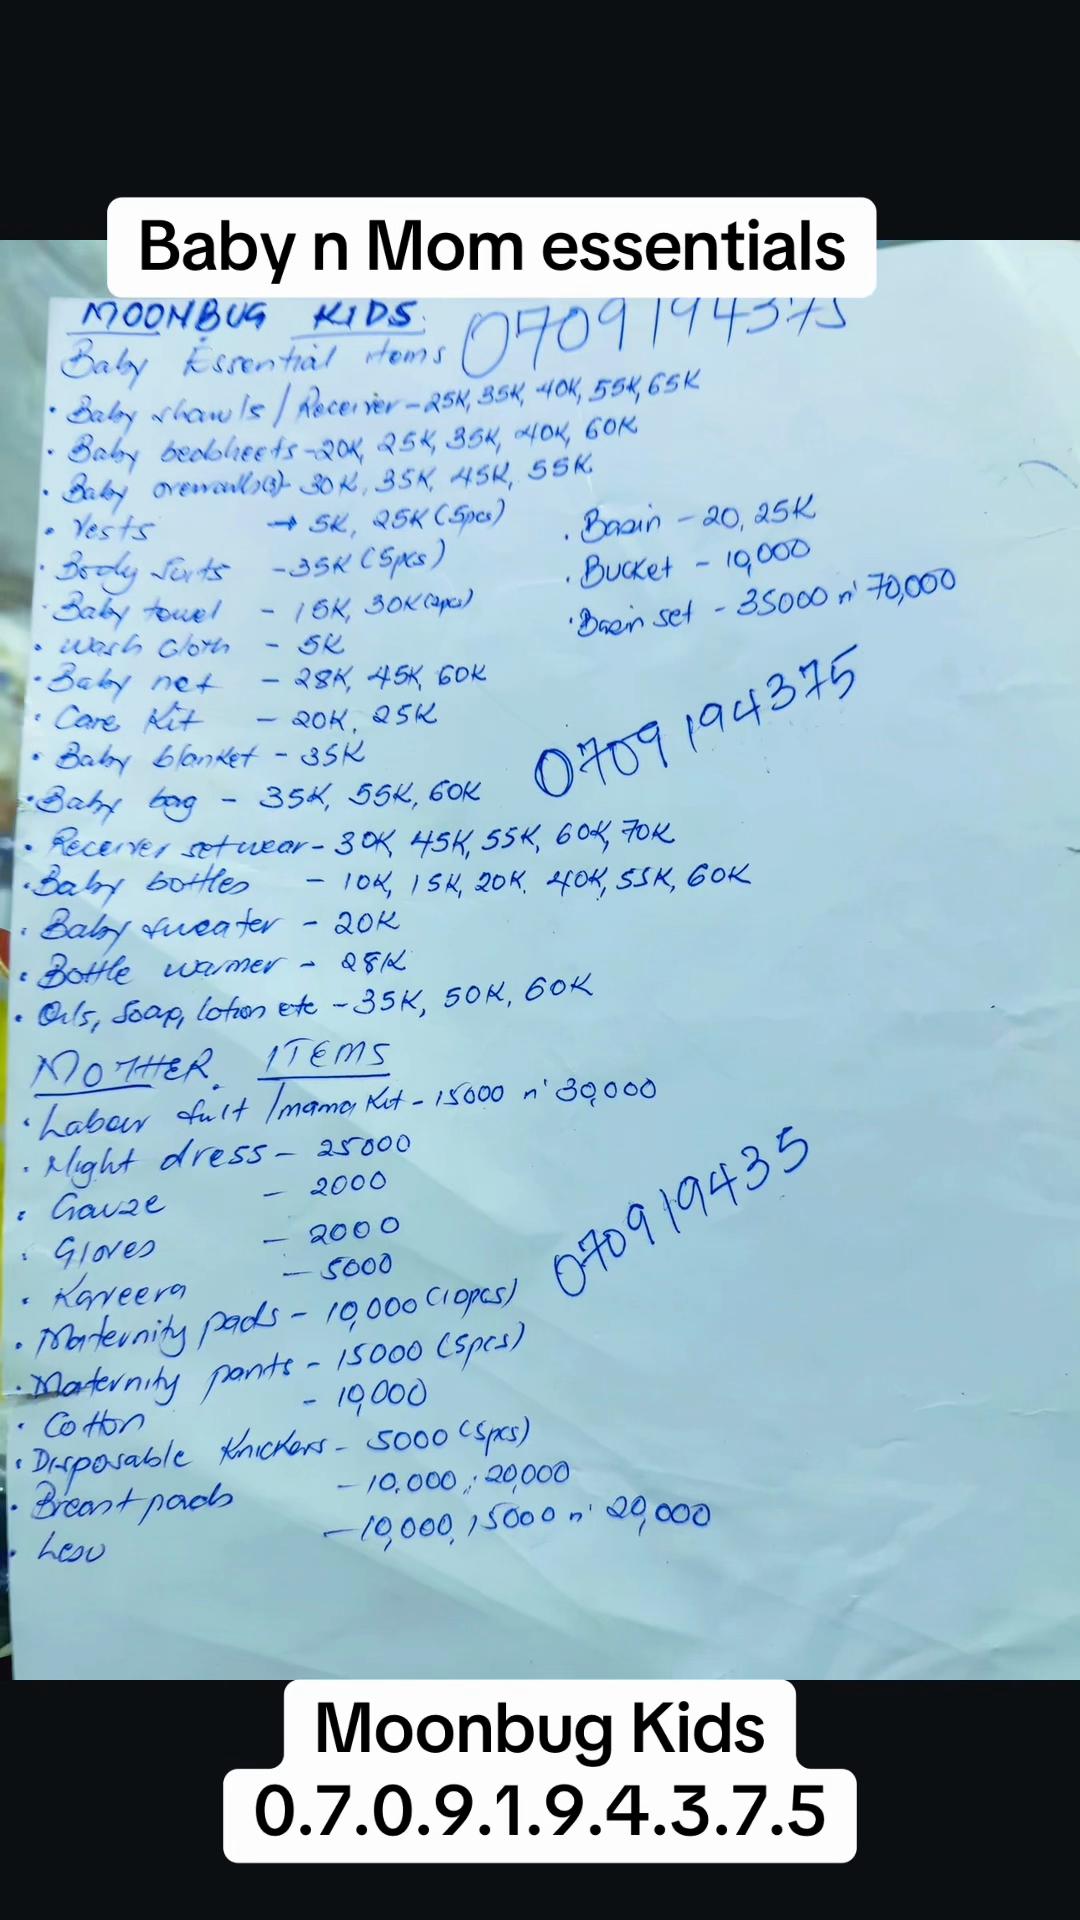 Baby n Mom essentials
MOONBUG KIDS. 0709194375
Baby Essential items
• Baby shawls / Receiver - 25K, 35K, 40K, 55K, 65K
• Baby bedsheets - 20K, 25K, 35K, 40K, 60K
• Baby overralls(3) - 30K, 35K, 45K, 55K
• Vests → 5K, 25K (5pcs)
• Body suits - 35K (5pcs)
• Baby towel - 15K, 30K (2pcs)
• Wash cloth - 5K
• Baby net - 28K, 45K, 60K
• Care Kit - 20K, 25K
• Baby blanket - 35K
• Baby bag - 35K, 55K, 60K
• Receiver set wear - 30K, 45K, 55K, 60K, 70K
• Baby bottles - 10K, 15K, 20K, 40K, 55K, 60K
• Baby sweater - 20K
• Bottle warmer - 28K
• Oils, Soap, lotion etc - 35K, 50K, 60K
• Basin - 20, 25K
• Bucket - 10,000
• Basin set - 35000 n' 70,000
0709194375
MOTHER. ITEMS
• Labour suit / mama Kit - 15000 n' 30,000
• Night dress - 25000
• Gauze - 2000
• Gloves - 2000
• Kaveera - 5000
• Maternity pads - 10,000 (10pcs)
• Maternity pants - 15000 (5pcs)
• Cotton - 10,000
• Disposable Knickers - 5000 (5pcs)
• Breast pads - 10.000 ; 20,000
• Lesu - 10,000, 15000 n' 20,000
070919435
Moonbug Kids
0.7.0.9.1.9.4.3.7.5